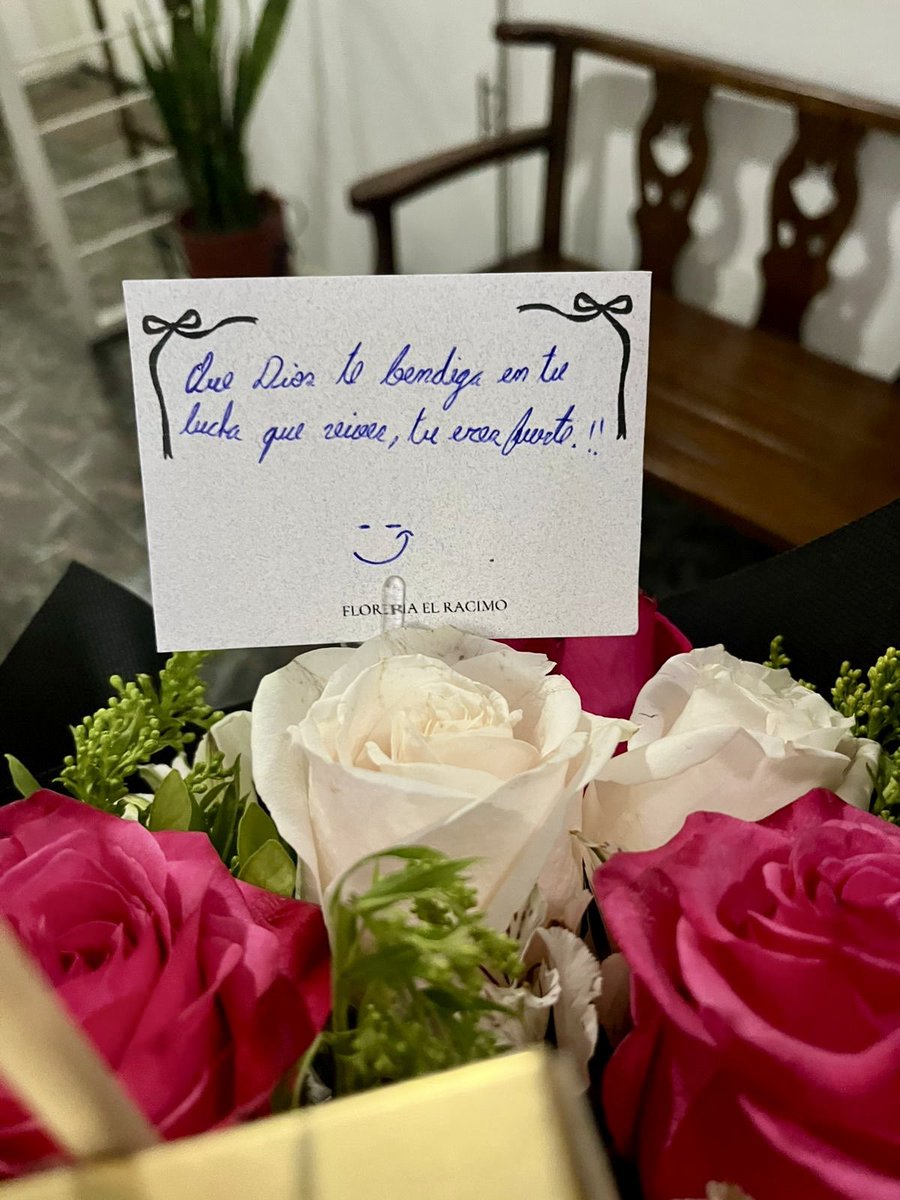 Que Dios te bendiga en tu
lucha que vives, tu eres fuerte.!!
FLORERIA EL RACIMO